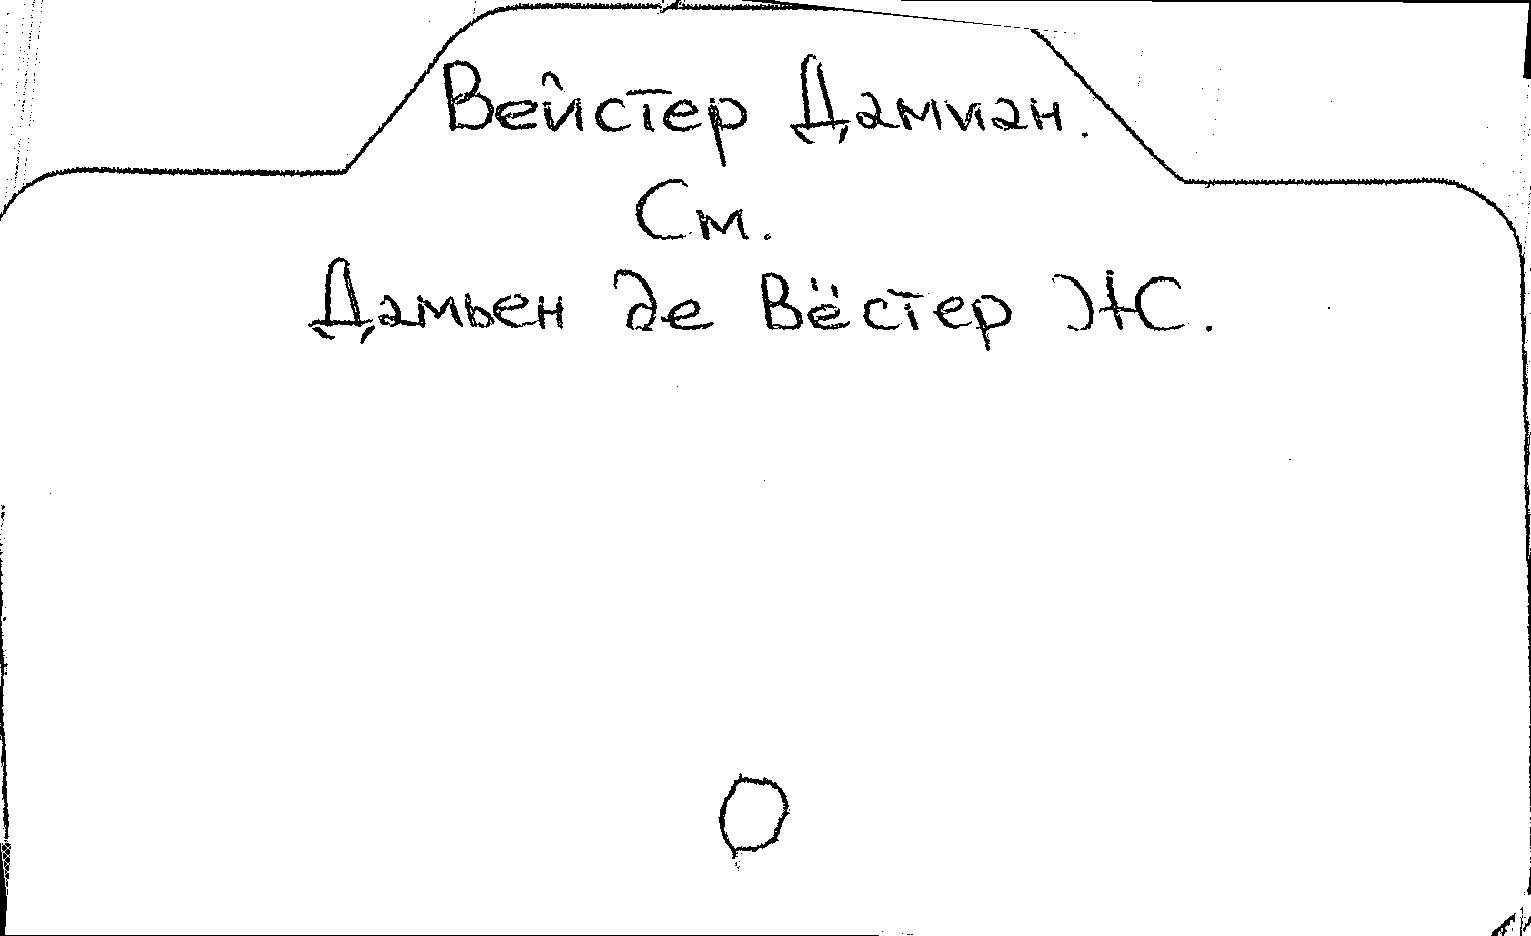 Вейстер Дамиан.
См.
Дамьен де Вёстер Ж.